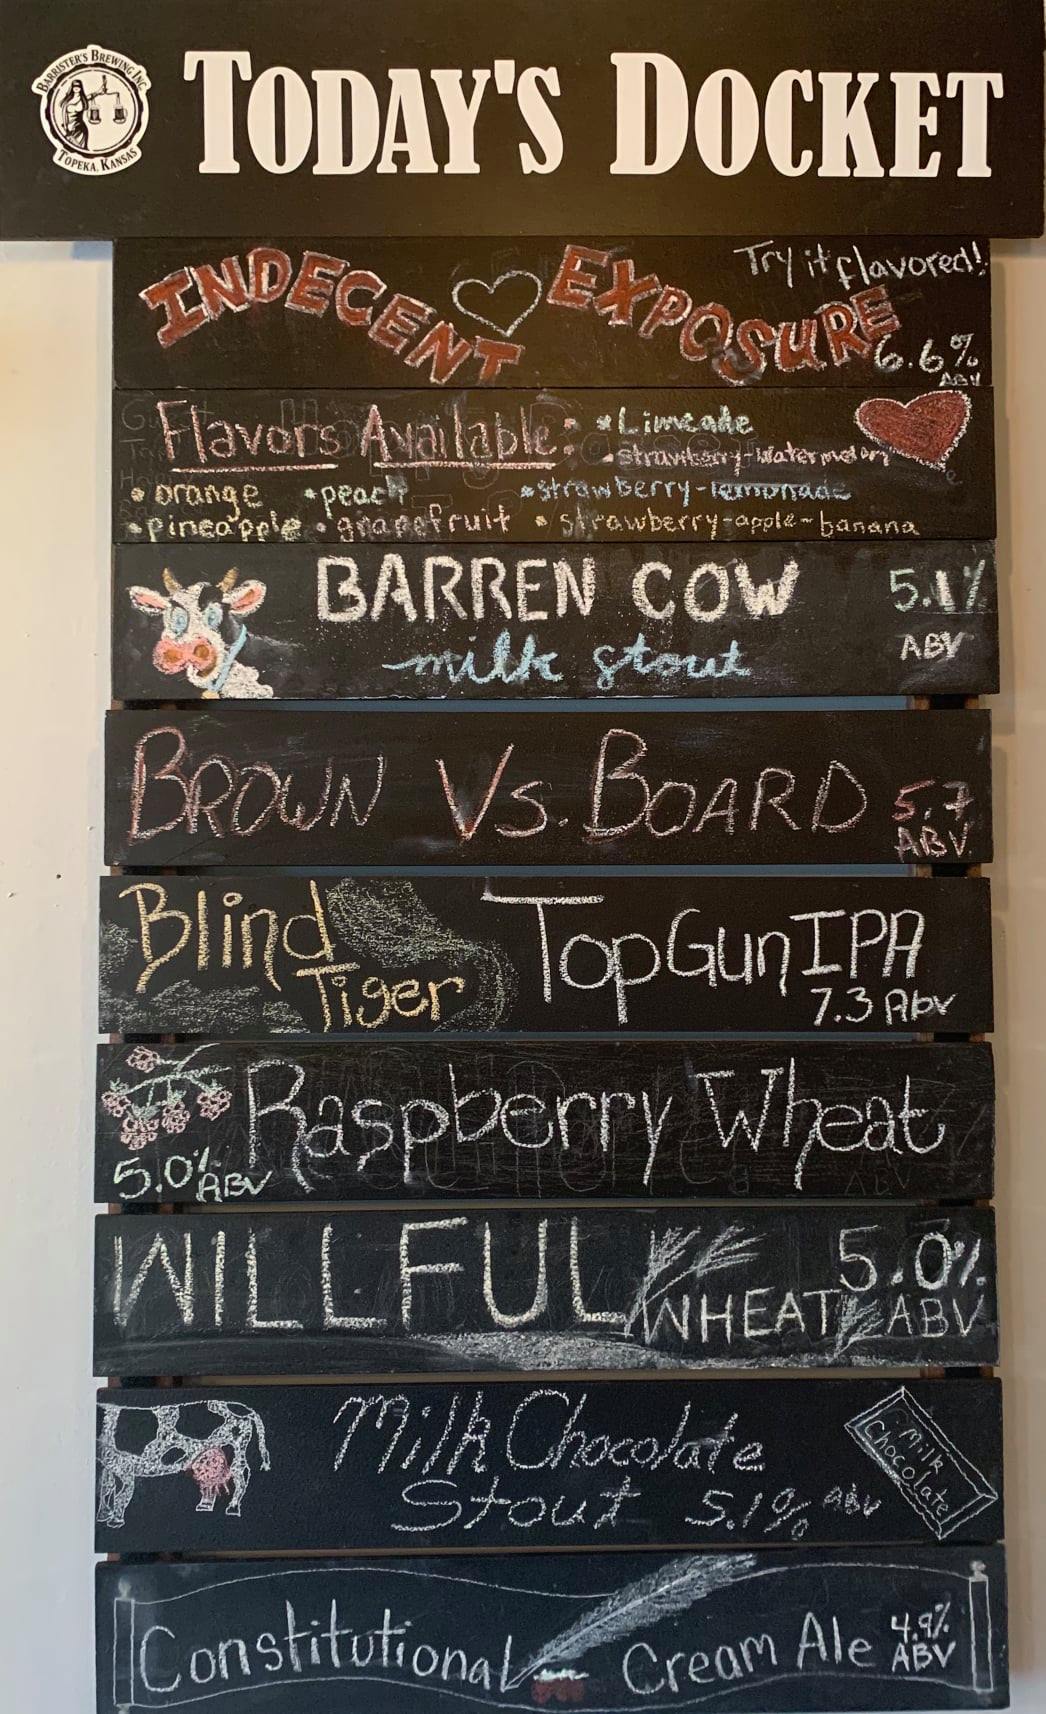 BARRISTER'S BREWING INC.
TOPEKA, KANSAS
TODAY'S DOCKET
INDECENT EXPOSURE
Try it flavored!
6.6%
ABV
Flavors Available:
• Limeade
• strawberry-watermelon
• orange • peach • strawberry-lemonade
• pineapple • grapefruit • strawberry-apple-banana
BARREN COW 5.1%
milk stout ABV
BROWN VS. BOARD 5.7
ABV
Blind
Tiger
TopGun IPA
7.3 Abv
Raspberry Wheat
5.0% ABV
WILLFUL 5.0%
WHEAT ABV
Milk Chocolate
Stout 5.1% ABV
Milk
Chocolate
Constitutional Cream Ale 4.9%
ABV